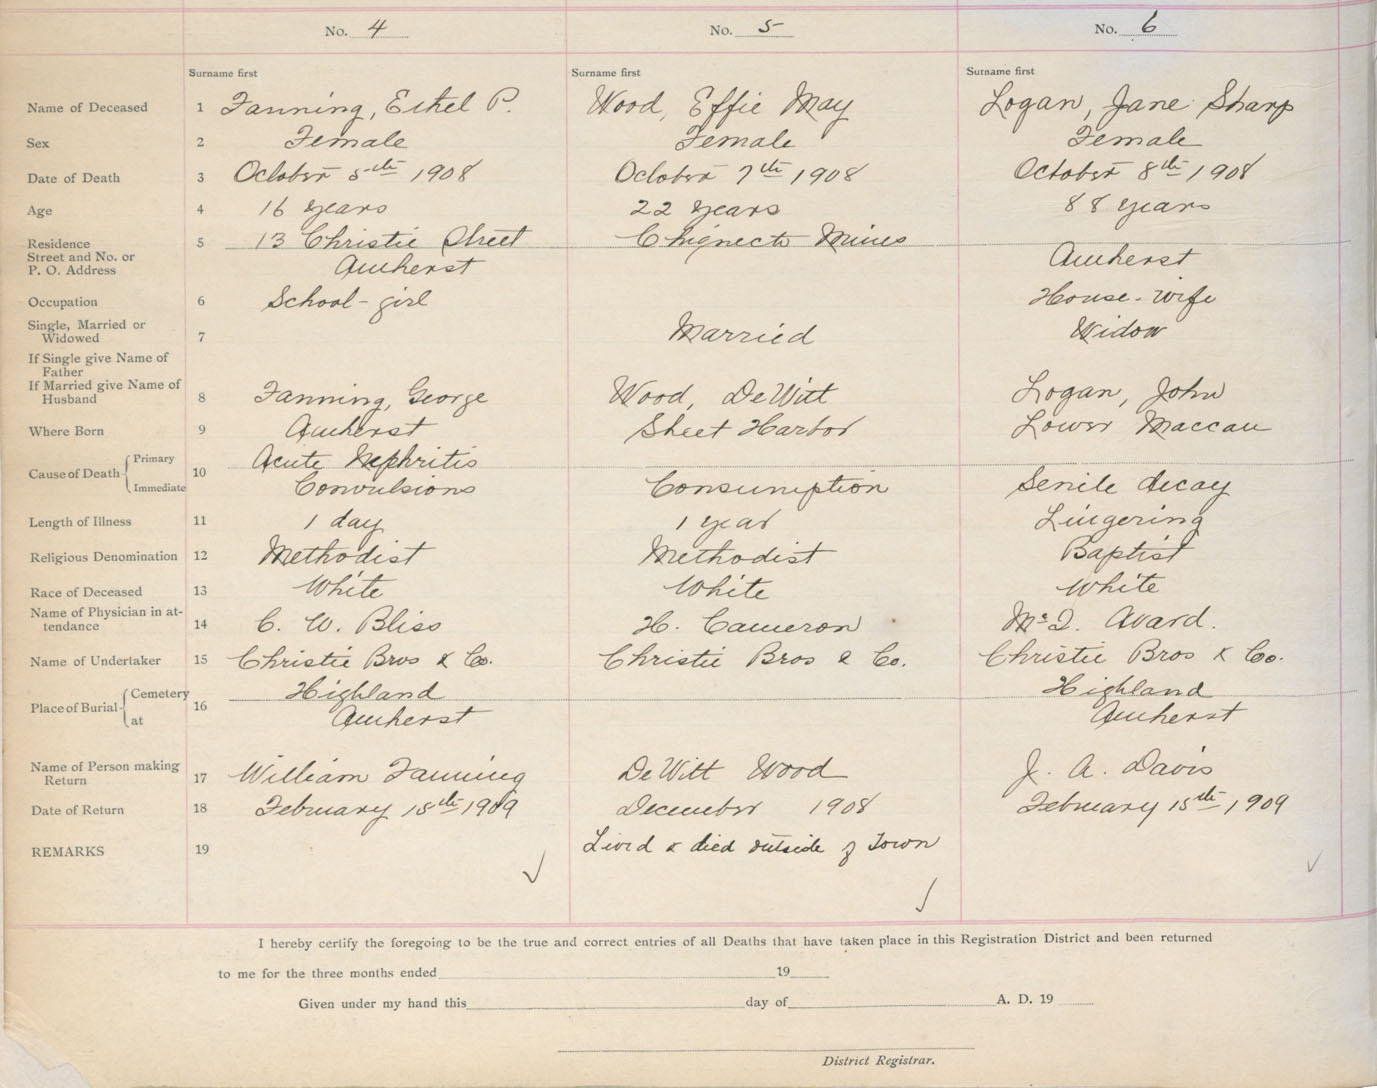 No. 4 No. 5 No. 6
Surname first Surname first Surname first
Name of Deceased 1 Fanning, Ethel P. Wood, Effie May Logan, Jane Sharp
Sex 2 Female Female Female
Date of Death 3 October 5th 1908 October 7th 1908 October 8th 1908
Age 4 16 years 22 years 88 years
Residence 5 13 Christie Street Chignecto Mines
Street and No. or
P. O. Address Amherst Amherst
Occupation 6 School-girl House-wife
Single, Married or
Widowed 7 Married Widow
If Single give Name of
Father
If Married give Name of
Husband 8 Fanning, George Wood, DeWitt Logan, John
Where Born 9 Amherst Sheet Harbor Lower Maccan
Cause of Death { Primary Acute Nephritis
Immediate 10 Convulsions Consumption Senile decay
Length of Illness 11 1 day 1 year Lingering
Religious Denomination 12 Methodist Methodist Baptist
Race of Deceased 13 White White White
Name of Physician in at-
tendance 14 C. W. Bliss H. Cameron Avard.
Name of Undertaker 15 Christie Bros & Co. Christie Bros & Co. Christie Bros & Co.
Place of Burial { Cemetery Highland Highland
at 16 Amherst Amherst
Name of Person making
Return 17 William Fanning DeWitt Wood J. A. Davis
Date of Return 18 February 15th 1909 December 1908 February 15th 1909
REMARKS 19 Lived & died outside of Town
I hereby certify the foregoing to be the true and correct entries of all Deaths that have taken place in this Registration District and been returned
to me for the three months ended 19
Given under my hand this day of A. D. 19
District Registrar.